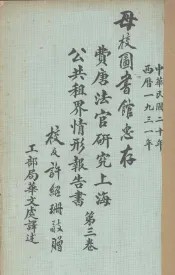 中華民國二十年
西曆一九三一年
母校圖書館惠存
費唐法官研究上海
公共租界情形報告書
第三卷
校友許紹珊敬贈
工部局華文處譯述